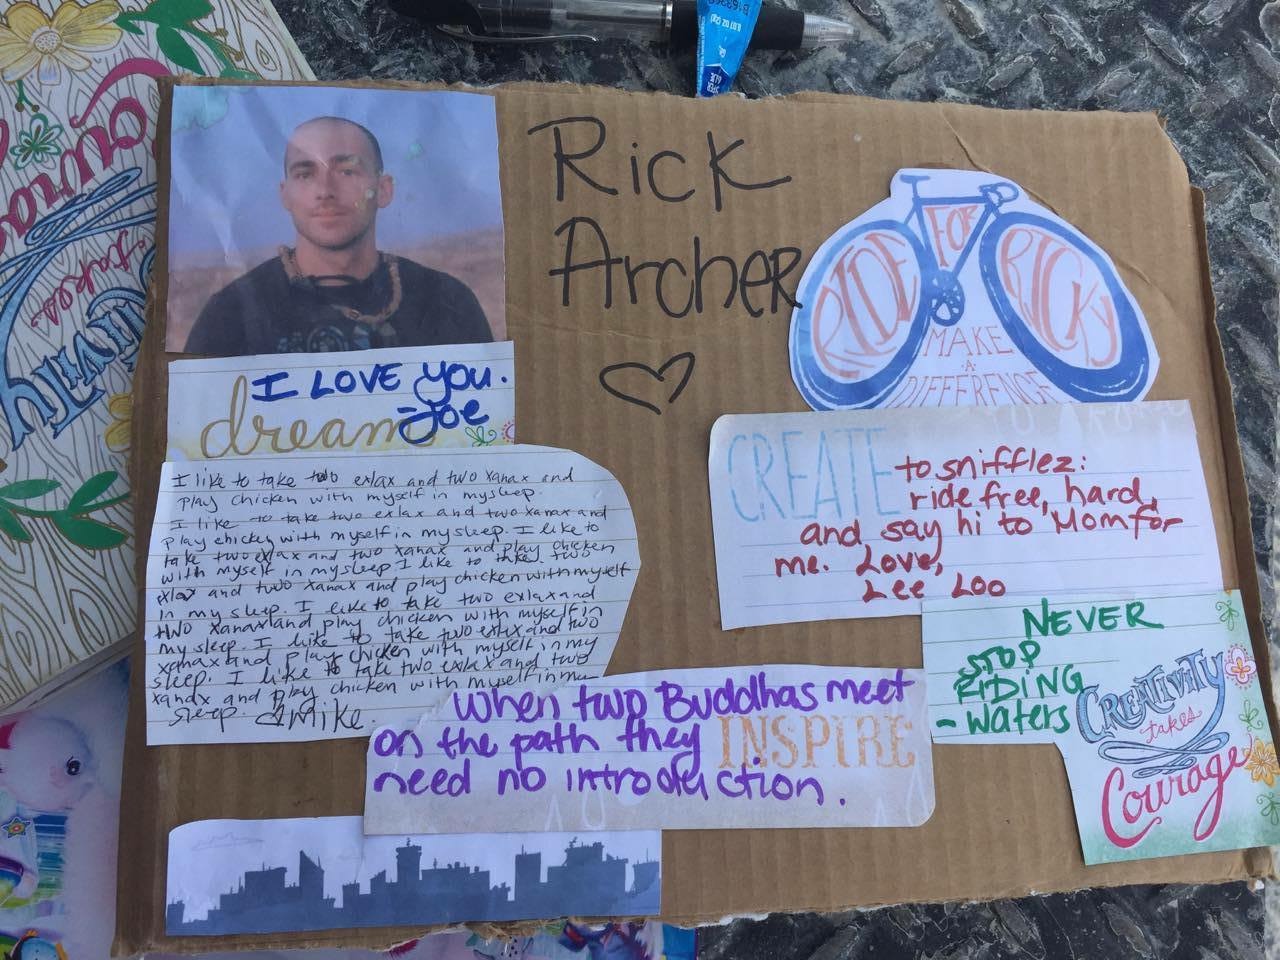 Rick
Archer
RIDE FOR RICKY
MAKE
A
DIFFERENCE
I LOVE You.
dream
-Joe
I like to take two exlax and two xanax and
play chicken with myself in my sleep.
I like to take two exlax and two xanax and
play chicken with myself in my sleep. I like to
take two exlax and two xanax and play chicken
with myself in my sleep I like to take two
exlax and two xanax and play chicken with myself
in my sleep. I like to take two exlax and
two xanax and play chicken with myself in
my sleep. I like to take two exlax and two
xanax and play chicken with myself in my
sleep. I like to take two exlax and two
xanax and play chicken with myself in my
sleep. Mike.
CREATE
to snifflez:
ride free, hard,
and say hi to Mom for
me. Love,
Lee Loo
NEVER
STOP
RIDING
- Waters
CREATIVITY
takes
Courage
When two Buddhas meet
on the path they
INSPIRE
need no introduction.
takes